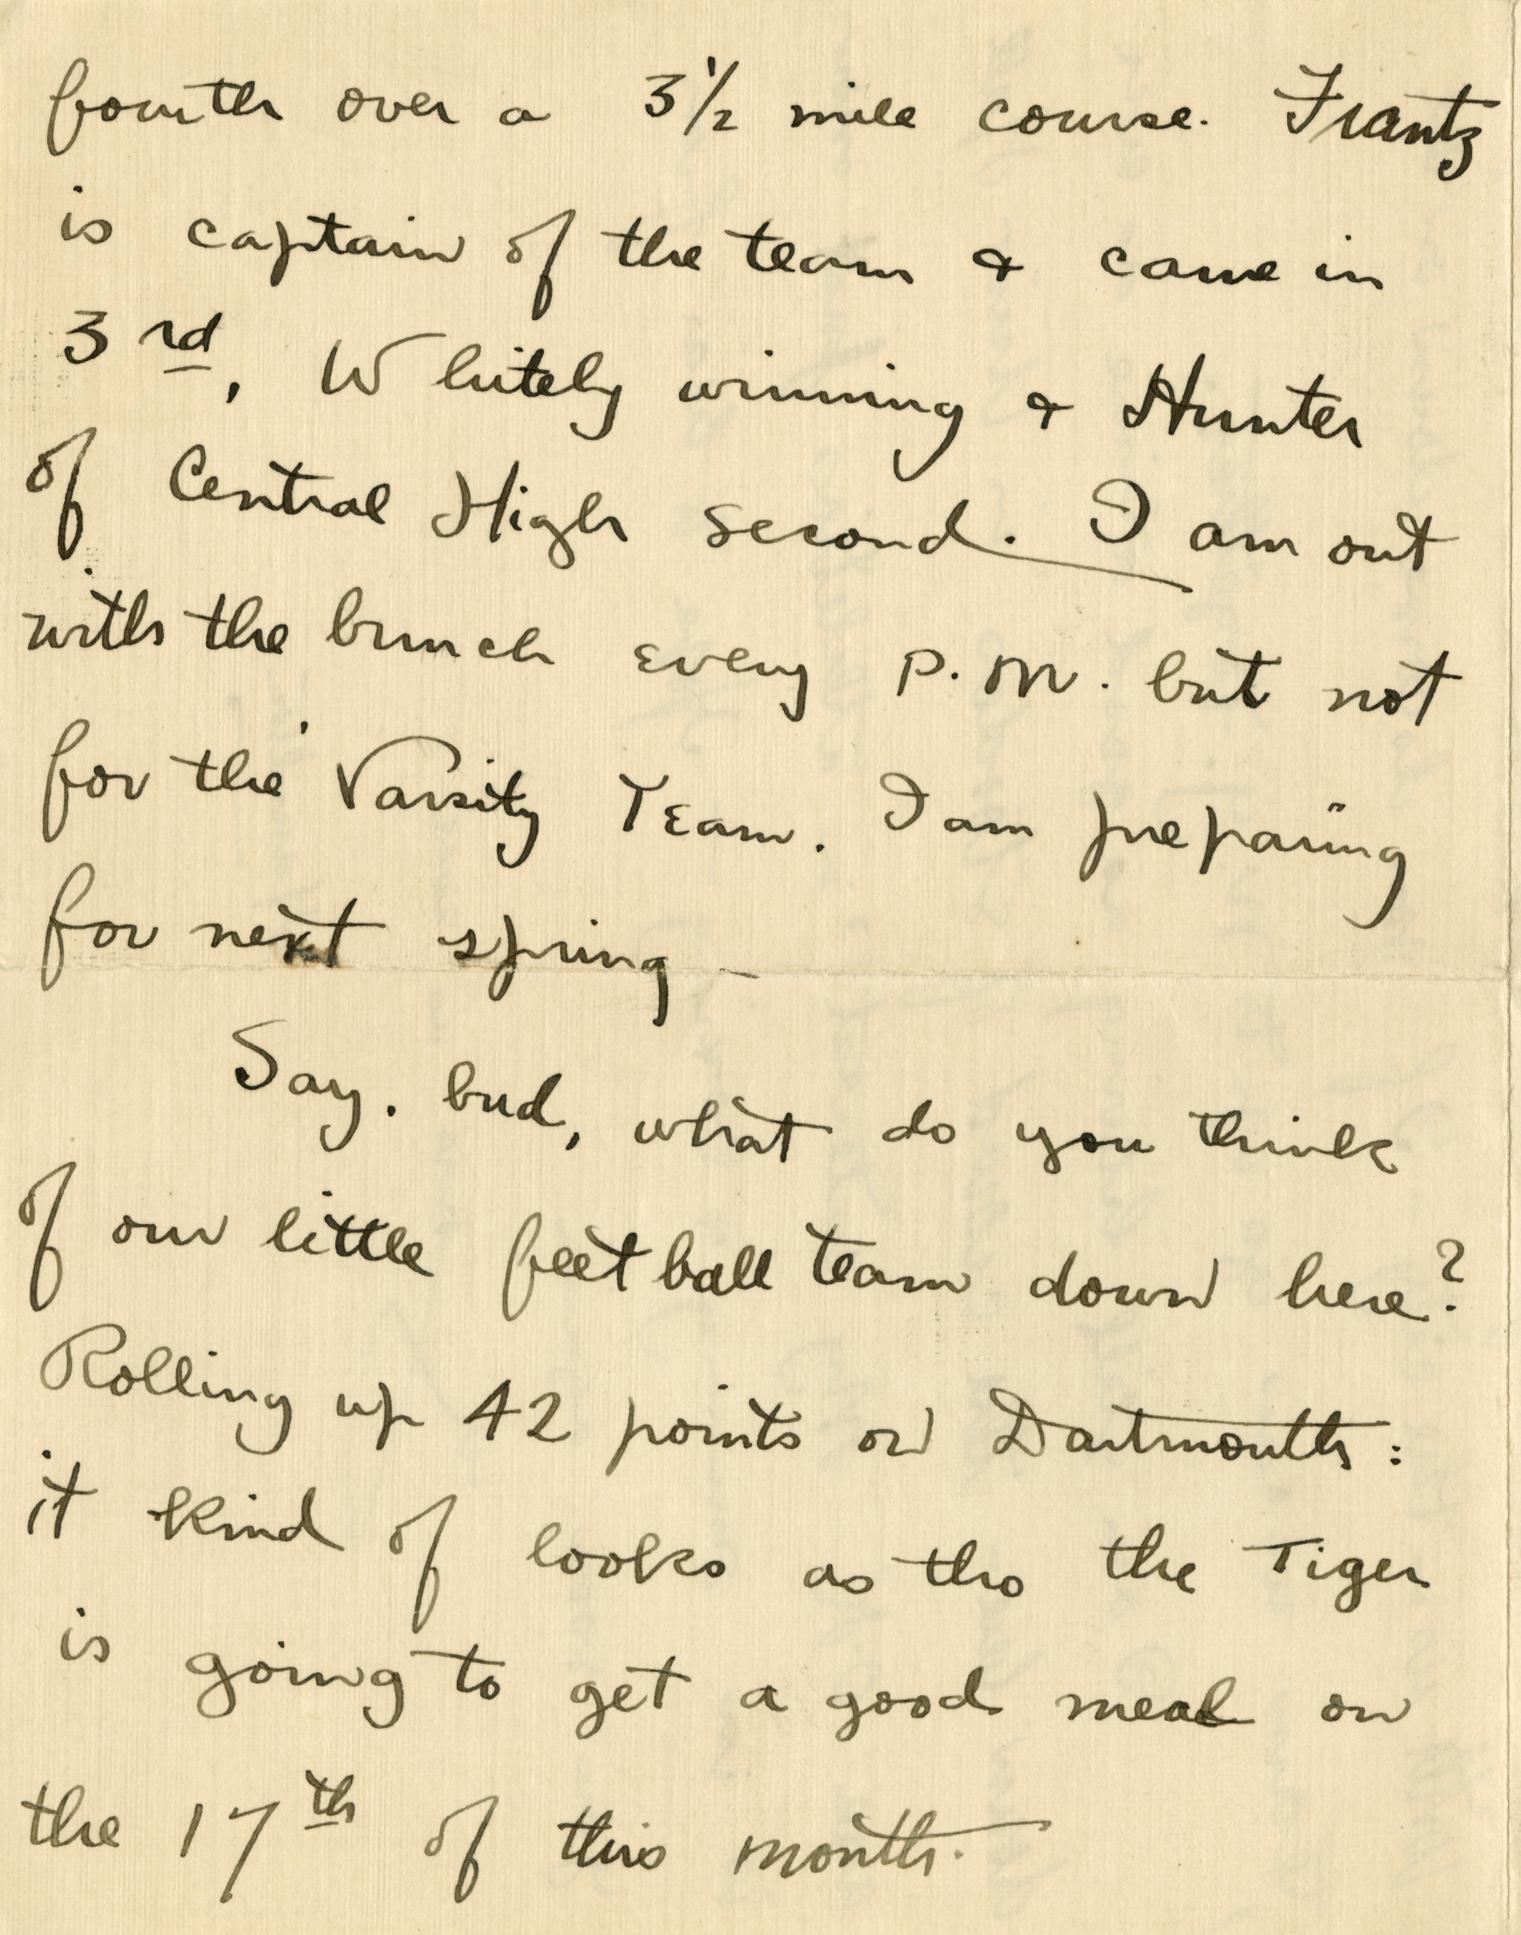 fourth over a 3 1/2 mile course. Frantz
is captain of the team & came in
3rd, Whitely winning & Hunter
of Central High second. I am out
with the bunch every P.M. but not
for the Varsity Team. I am preparing
for next spring –
Say. bud, what do you think
of our little feet ball team down here?
Rolling up 42 points on Dartmouth:
it kind of looks as tho the Tiger
is going to get a good meal on
the 17th of this month.